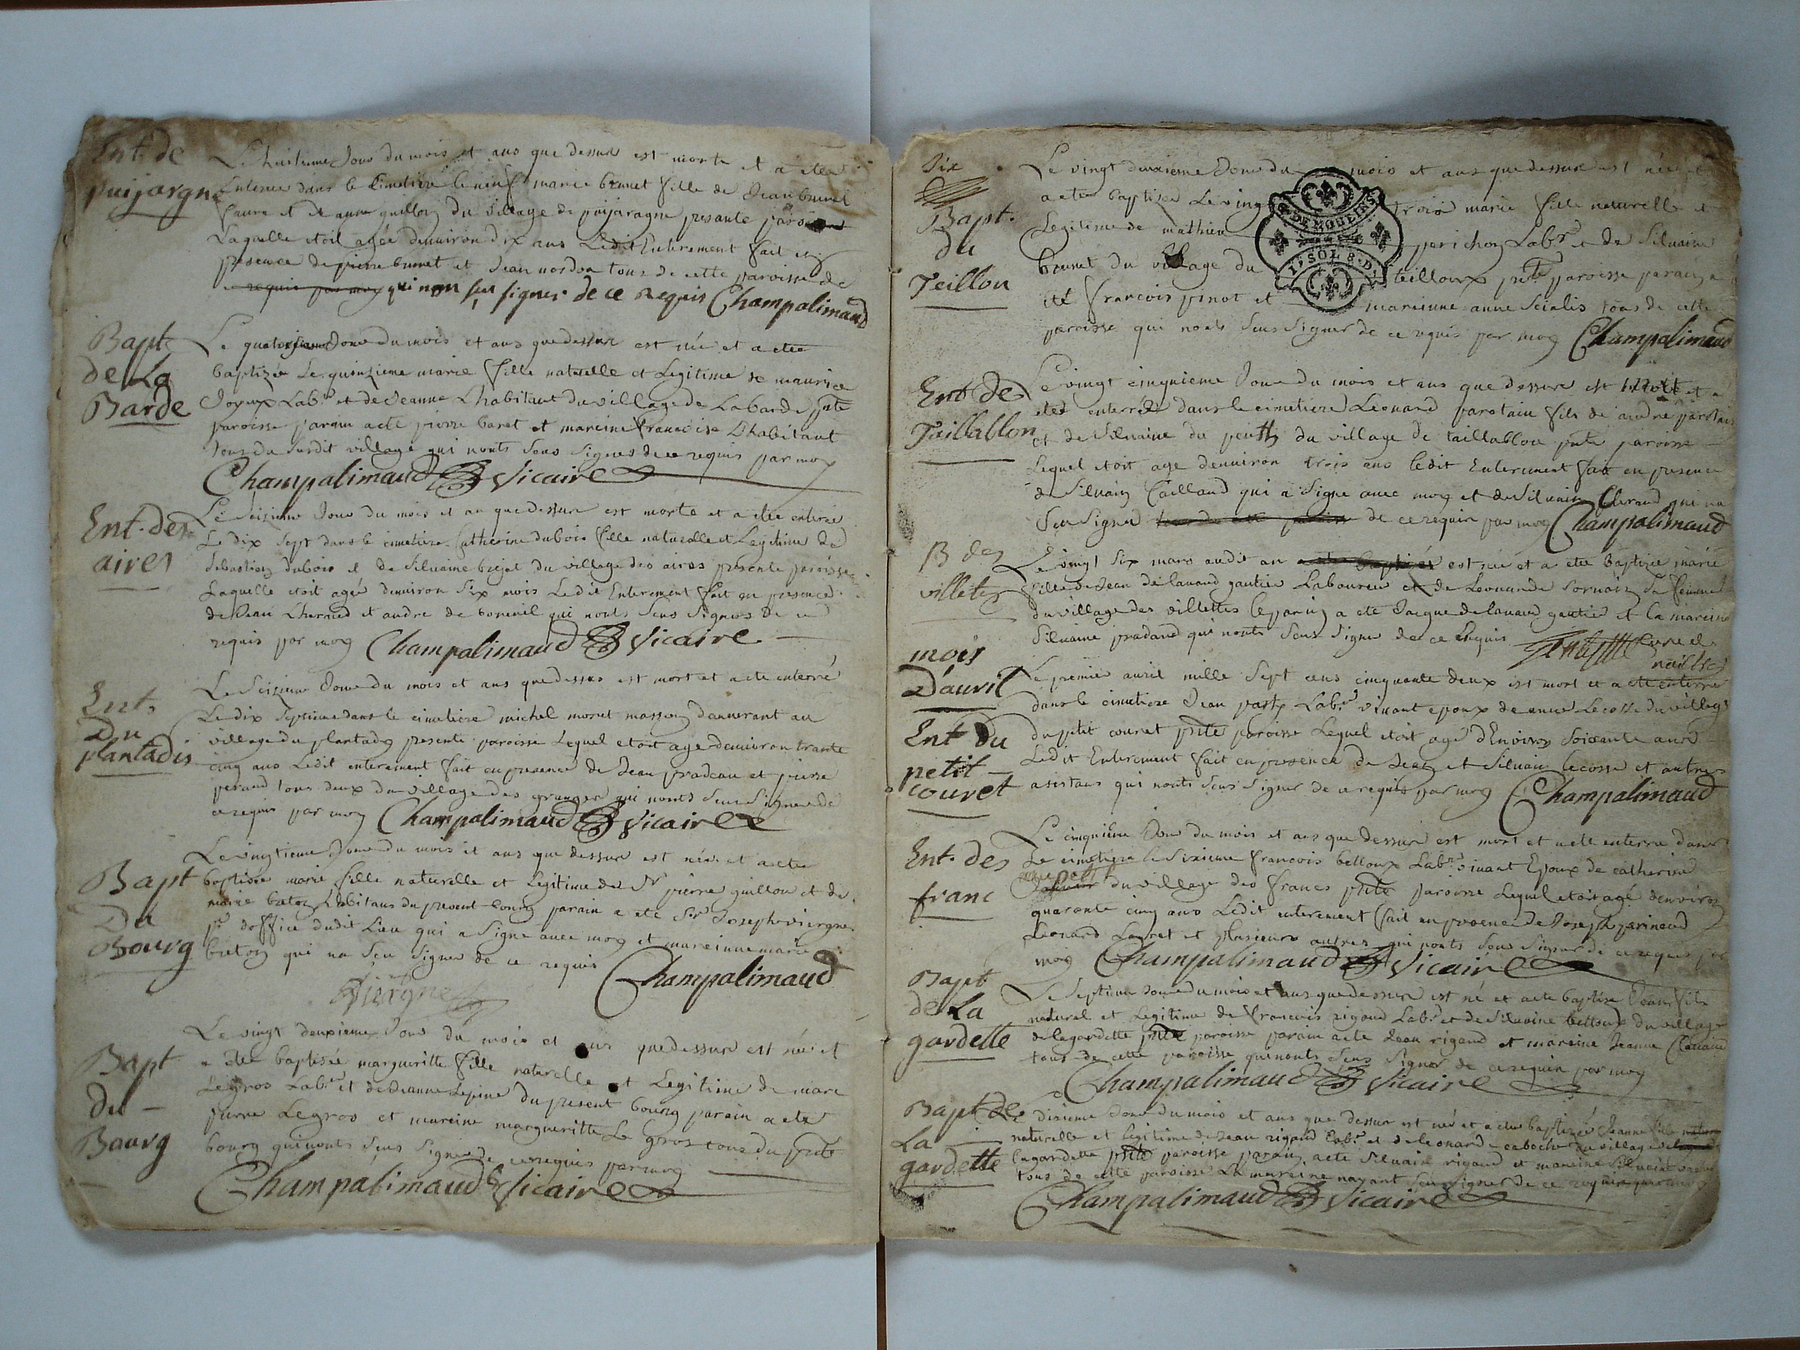 Ent. de
puijaragne
Le huitieme Jour du mois et ans que dessus est morte et a ettee
Enteree dans le Cimetiere le neuf marie brunet fille de Jean brunet
faure et de anne guillon du village de puijaragne presante paroisse
Laquelle etoit agée denuiron dix ans Ledit Enterement fait en
presence de pierre brunet et Jean nordon tous de cette paroisse de
qui nom seu signer de ce Requis Champalimaud
Bapt
de La
Barde
Le quatorzieme Jour du mois et ans que dessus est née et a etee
baptizée Le quinzieme marie fille naturelle et Legitime de maurice
Joyeux Labr et de Jeanne Lhabitant du village de Labarde pnte
paroisse parain a eté pierre baret et mareine francoise Lhabitant
tous du susdit village qui nonts seus Signer de ce requis par moy
Champalimaud Vicaire
Ent. des
aires
Le Seizieme Jour du mois et an que dessus est morte et a etee enterée
Le dix sept dans le cimetiere Catherine dubois fille naturelle et Legitime de
Sebastien dubois et de Siluaine bujet du village des aires presente paroisse
Laquelle etoit agée denuiron six mois Ledit Enterement fait en presence
de Jean Lhuraud et andre de boneuil qui nonts seus Signer de ce
requis par moy Champalimaud Vicaire
Ent.
Du
plantadis
Le Seizieme Jour du mois et ans que dessus est mort et a ete enterré
Le dix septieme dans le cimetiere michel moret masson demeurant au
village du plantady presente paroisse Lequel etoit age denuiron trante
cinq ans Ledit enterement fait en presence de Jean pradeau et pierre
peraud tous deux du village des granges qui nonts seus Signer de
ce requis par moy Champalimaud Vicaire
Bapt
Du
Bourg
Le vingtieme Jour du mois et ans que dessus est née et a etee
baptisée marie fille naturelle et Legitime de Sr pierre guillon et de
marie breton habitans du present bourg parain a eté Sr Joseph viergne
pr doffice dudit Lieu qui a Signe auec moy et mareinne marie
breton qui na seu Signer de ce requis Champalimaud
Viergne
Bapt
du
Bourg
Le vingt deuxieme Jour du mois et ans que dessus est née et
a etee baptisée marguritte fille naturelle et Legitime de marc
Legros Labr et de Jeanne Lepine du present bourg parain a ete
pierre Legros et mareine margueritte Le gros tous du pnte
bourg qui nonts seus Signer de ce requis par moy
Champalimaud Vicaire
Six
Bapt.
du
Teillou
Le vingt deuxieme Jour du mois et ans que dessus est née et
a etee baptisée Le vingt trois marie fille naturelle et
Legitime de mathieu perichon Labr et de Siluaine
brunet du village du teilloux pnte paroisse parain a
eté francois pinot et mareinne anne Scialis tous de cette
paroisse qui nonts seus Signer de ce requis par moy Champalimaud
G. DE MOULINS
1. SOL 8. D.
Ent. de
Taillablon
Le vingt cinquieme Jour du mois et ans que dessus est mort et a
eté enterré dans le cimetiere Leonard parotain fils de andré parotain
et de Siluaine du peux du village de taillablou pnte paroisse
Lequel etoit age denuiron trois ans ledit Enterement fait en presence
de Siluain Caillaud qui a Signe auec moy et de Siluain Lheraud qui na
seu Signer de ce requis par moy Champalimaud
B des
villetes
Le vingt Six mars audit an est née et a ete baptizée marie
fille de Jean delanaud gautier Laboureur et de Leonarde Sornain Sa femme
du village des villettes le parin a ete Jacque delanaud gautier et la mareine
Siluaine pradaud qui nonts seus Signer de ce Requis
mois
D'auril
Ent du
petit
couret
Le premier auril mille Sept cens cinquante deux est mort et a ete enterré
dans le cimetiere Jean pasty Labr viuant epoux de anne Lecosse du village
du petit couret pnte paroisse Lequel etoit age d'Enuiron Soixante ans
Ledit Enterement fait en presence de Jean et Siluain lecosse et autres
asistans qui nonts seus Signer de ce requis par moy Champalimaud
Ent. des
franc
Le cinquieme Jour du mois et ans que dessus est mort et a ete enterré dans
Le cimetiere le Sixieme francois belloux Labr viuant Epoux de catherine
du village des francs pnte paroisse Lequel etoit agé denuiron
quarante cinq ans Ledit enterement fait en presence de Joseph parinaud
Leonard Louret et plusieurs autres qui nonts seus Signer de ce requis par
moy Champalimaud Vicaire
Bapt
de La
gardette
Le Septieme Jour du mois et ans que dessus est né et a ete baptisé Jean fils
naturel et Legitime de francois rigaud Labr et de Siluaine belloux du village
de lagardette pnte paroisse parain a eté Jean rigaud et mareine Jeanne
tous de cette paroisse qui nonts seus Signer de ce requis par moy
Champalimaud Vicaire
Bapt de
La
gardette
dixieme Jour du mois et ans que dessus est née et a etee baptizée Jeanne fille
naturelle et Legitime de Jean rigaud Labr et de leonarde caboche du village de
lagardette pnte paroisse parain a eté Siluain rigaud et mareine
tous de cette paroisse La mareine nayant seu Signer de ce requis par moy
Champalimaud Vicaire